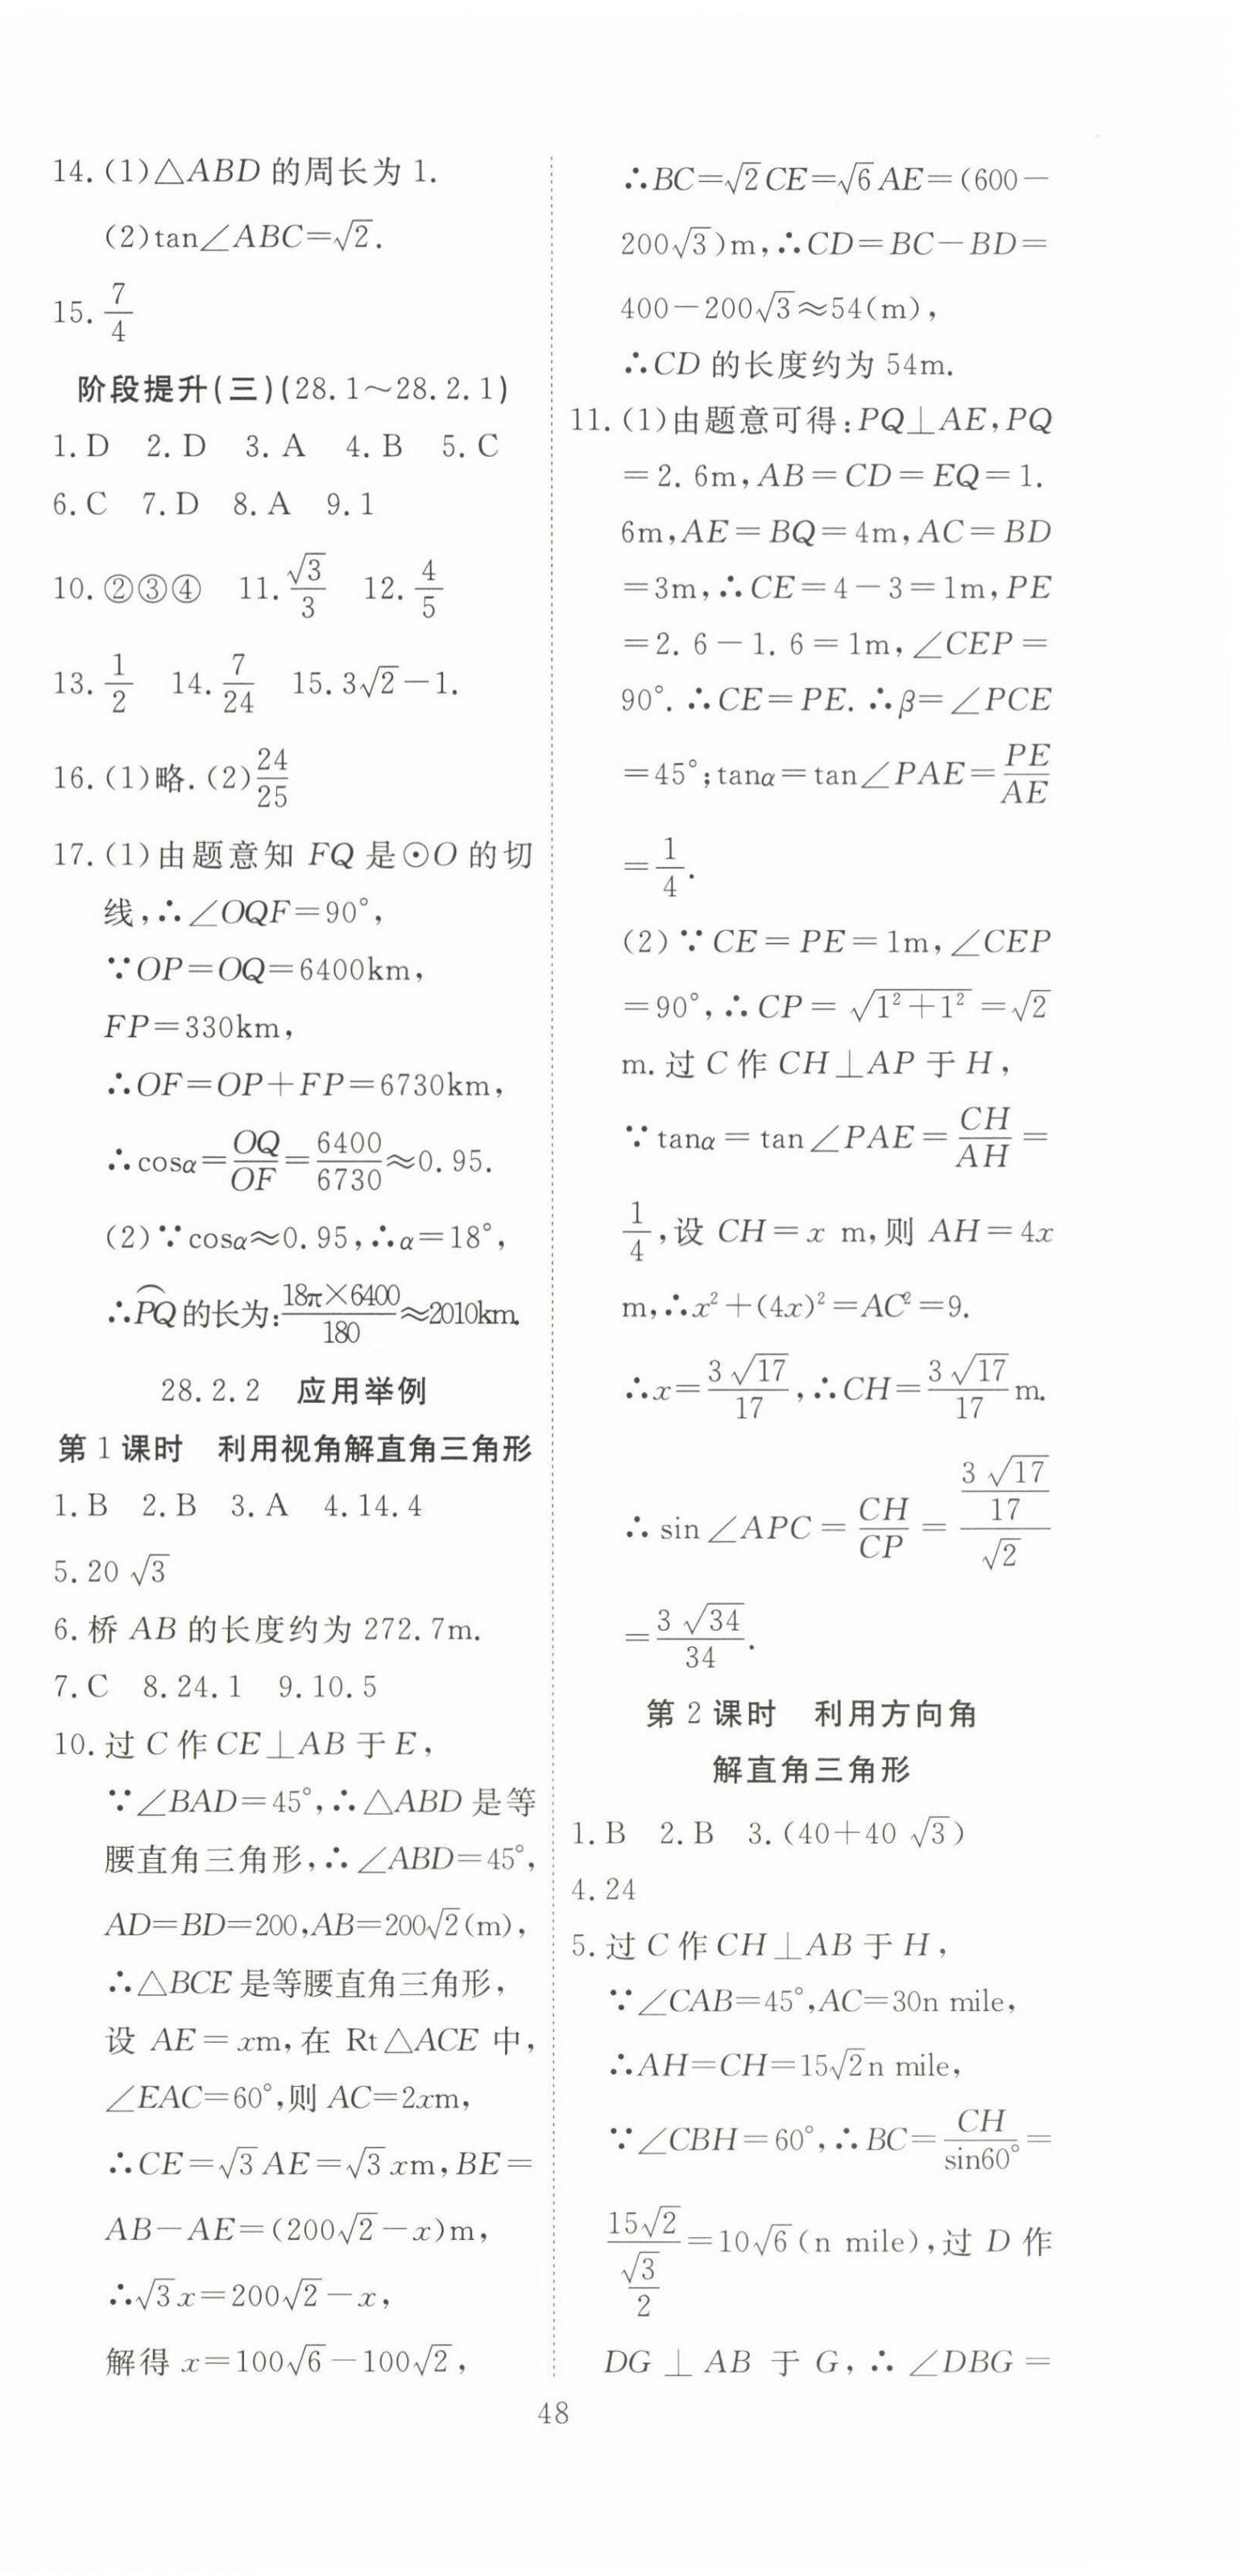 14. (1)△ABD 的周长为 1.
(2)tan∠ABC=√2.
15. 7/4
阶段提升(三)(28.1～28.2.1)
1. D 2. D 3. A 4. B 5. C
6. C 7. D 8. A 9. 1
10. ②③④ 11. √3/3 12. 4/5
13. 1/2 14. 7/24 15. 3√2－1.
16. (1)略. (2)24/25
17. (1)由题意知 FQ 是⊙O 的切
线,∴∠OQF=90°,
∵OP=OQ=6400km,
FP=330km,
∴OF=OP+FP=6730km,
∴cosα=OQ/OF=6400/6730≈0.95.
(2)∵cosα≈0.95,∴α=18°,
∴⌒PQ的长为:18π×6400/180≈2010km.
28.2.2 应用举例
第 1 课时 利用视角解直角三角形
1. B 2. B 3. A 4. 14.4
5. 20√3
6. 桥 AB 的长度约为 272.7m.
7. C 8. 24.1 9. 10.5
10. 过 C 作 CE⊥AB 于 E,
∵∠BAD=45°,∴△ABD 是等
腰直角三角形,∴∠ABD=45°,
AD=BD=200,AB=200√2(m),
∴△BCE 是等腰直角三角形,
设 AE=xm,在 Rt△ACE 中,
∠EAC=60°,则 AC=2xm,
∴CE=√3AE=√3xm,BE=
AB－AE=(200√2－x)m,
∴√3x=200√2－x,
解得 x=100√6－100√2,
∴BC=√2CE=√6AE=(600－
200√3)m,∴CD=BC－BD=
400－200√3≈54(m),
∴CD 的长度约为 54m.
11. (1)由题意可得:PQ⊥AE,PQ
=2.6m,AB=CD=EQ=1.
6m,AE=BQ=4m,AC=BD
=3m,∴CE=4－3=1m,PE
=2.6－1.6=1m,∠CEP=
90°.∴CE=PE.∴β=∠PCE
=45°;tanα=tan∠PAE=PE/AE
=1/4.
(2)∵CE=PE=1m,∠CEP
=90°,∴CP=√(1²+1²)=√2
m. 过 C 作 CH⊥AP 于 H,
∵tanα=tan∠PAE=CH/AH=
1/4,设 CH=x m,则 AH=4x
m,∴x²+(4x)²=AC²=9.
∴x=3√17/17,∴CH=3√17/17 m.
∴sin∠APC=CH/CP=(3√17/17)/√2
=3√34/34.
第 2 课时 利用方向角
解直角三角形
1. B 2. B 3. (40+40√3)
4. 24
5. 过 C 作 CH⊥AB 于 H,
∵∠CAB=45°,AC=30n mile,
∴AH=CH=15√2n mile,
∵∠CBH=60°,∴BC=CH/sin60°=
15√2/(√3/2)=10√6(n mile),过 D 作
DG⊥AB 于 G,∴∠DBG=
48